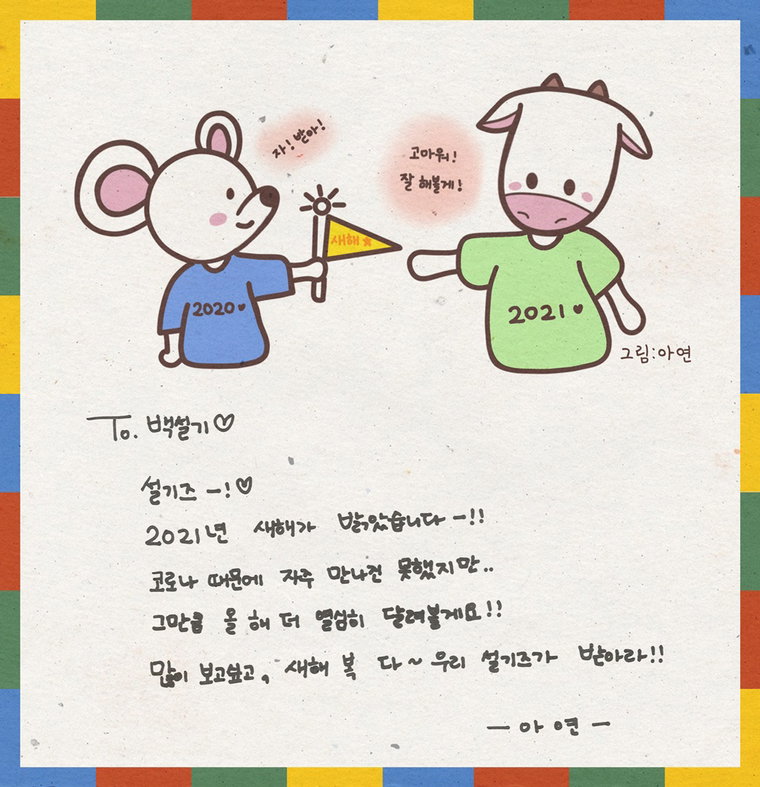 자! 받아!
고마워!
잘 해볼게!
새해
2020
2021
그림:아연
To. 백설기♡
설기즈 -!♡
2021년 새해가 밝았습니다-!!
코로나 때문에 자주 만나진 못했지만..
그만큼 올 해 더 열심히 달려볼게요!!
많이 보고싶고, 새해 복 다~ 우리 설기즈가 받아라!!
- 아 연 -